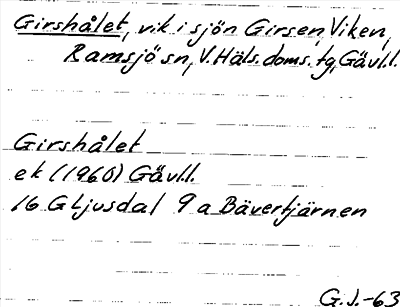 Girshålet, vik i sjön Girsen, Viken,
Ramsjö sn, V. Häls. doms. tg, Gävl.l.
Girshålet
ek (1960) Gävl.l.
16 G Ljusdal 9 a Bävertjärnen
G.J.-63